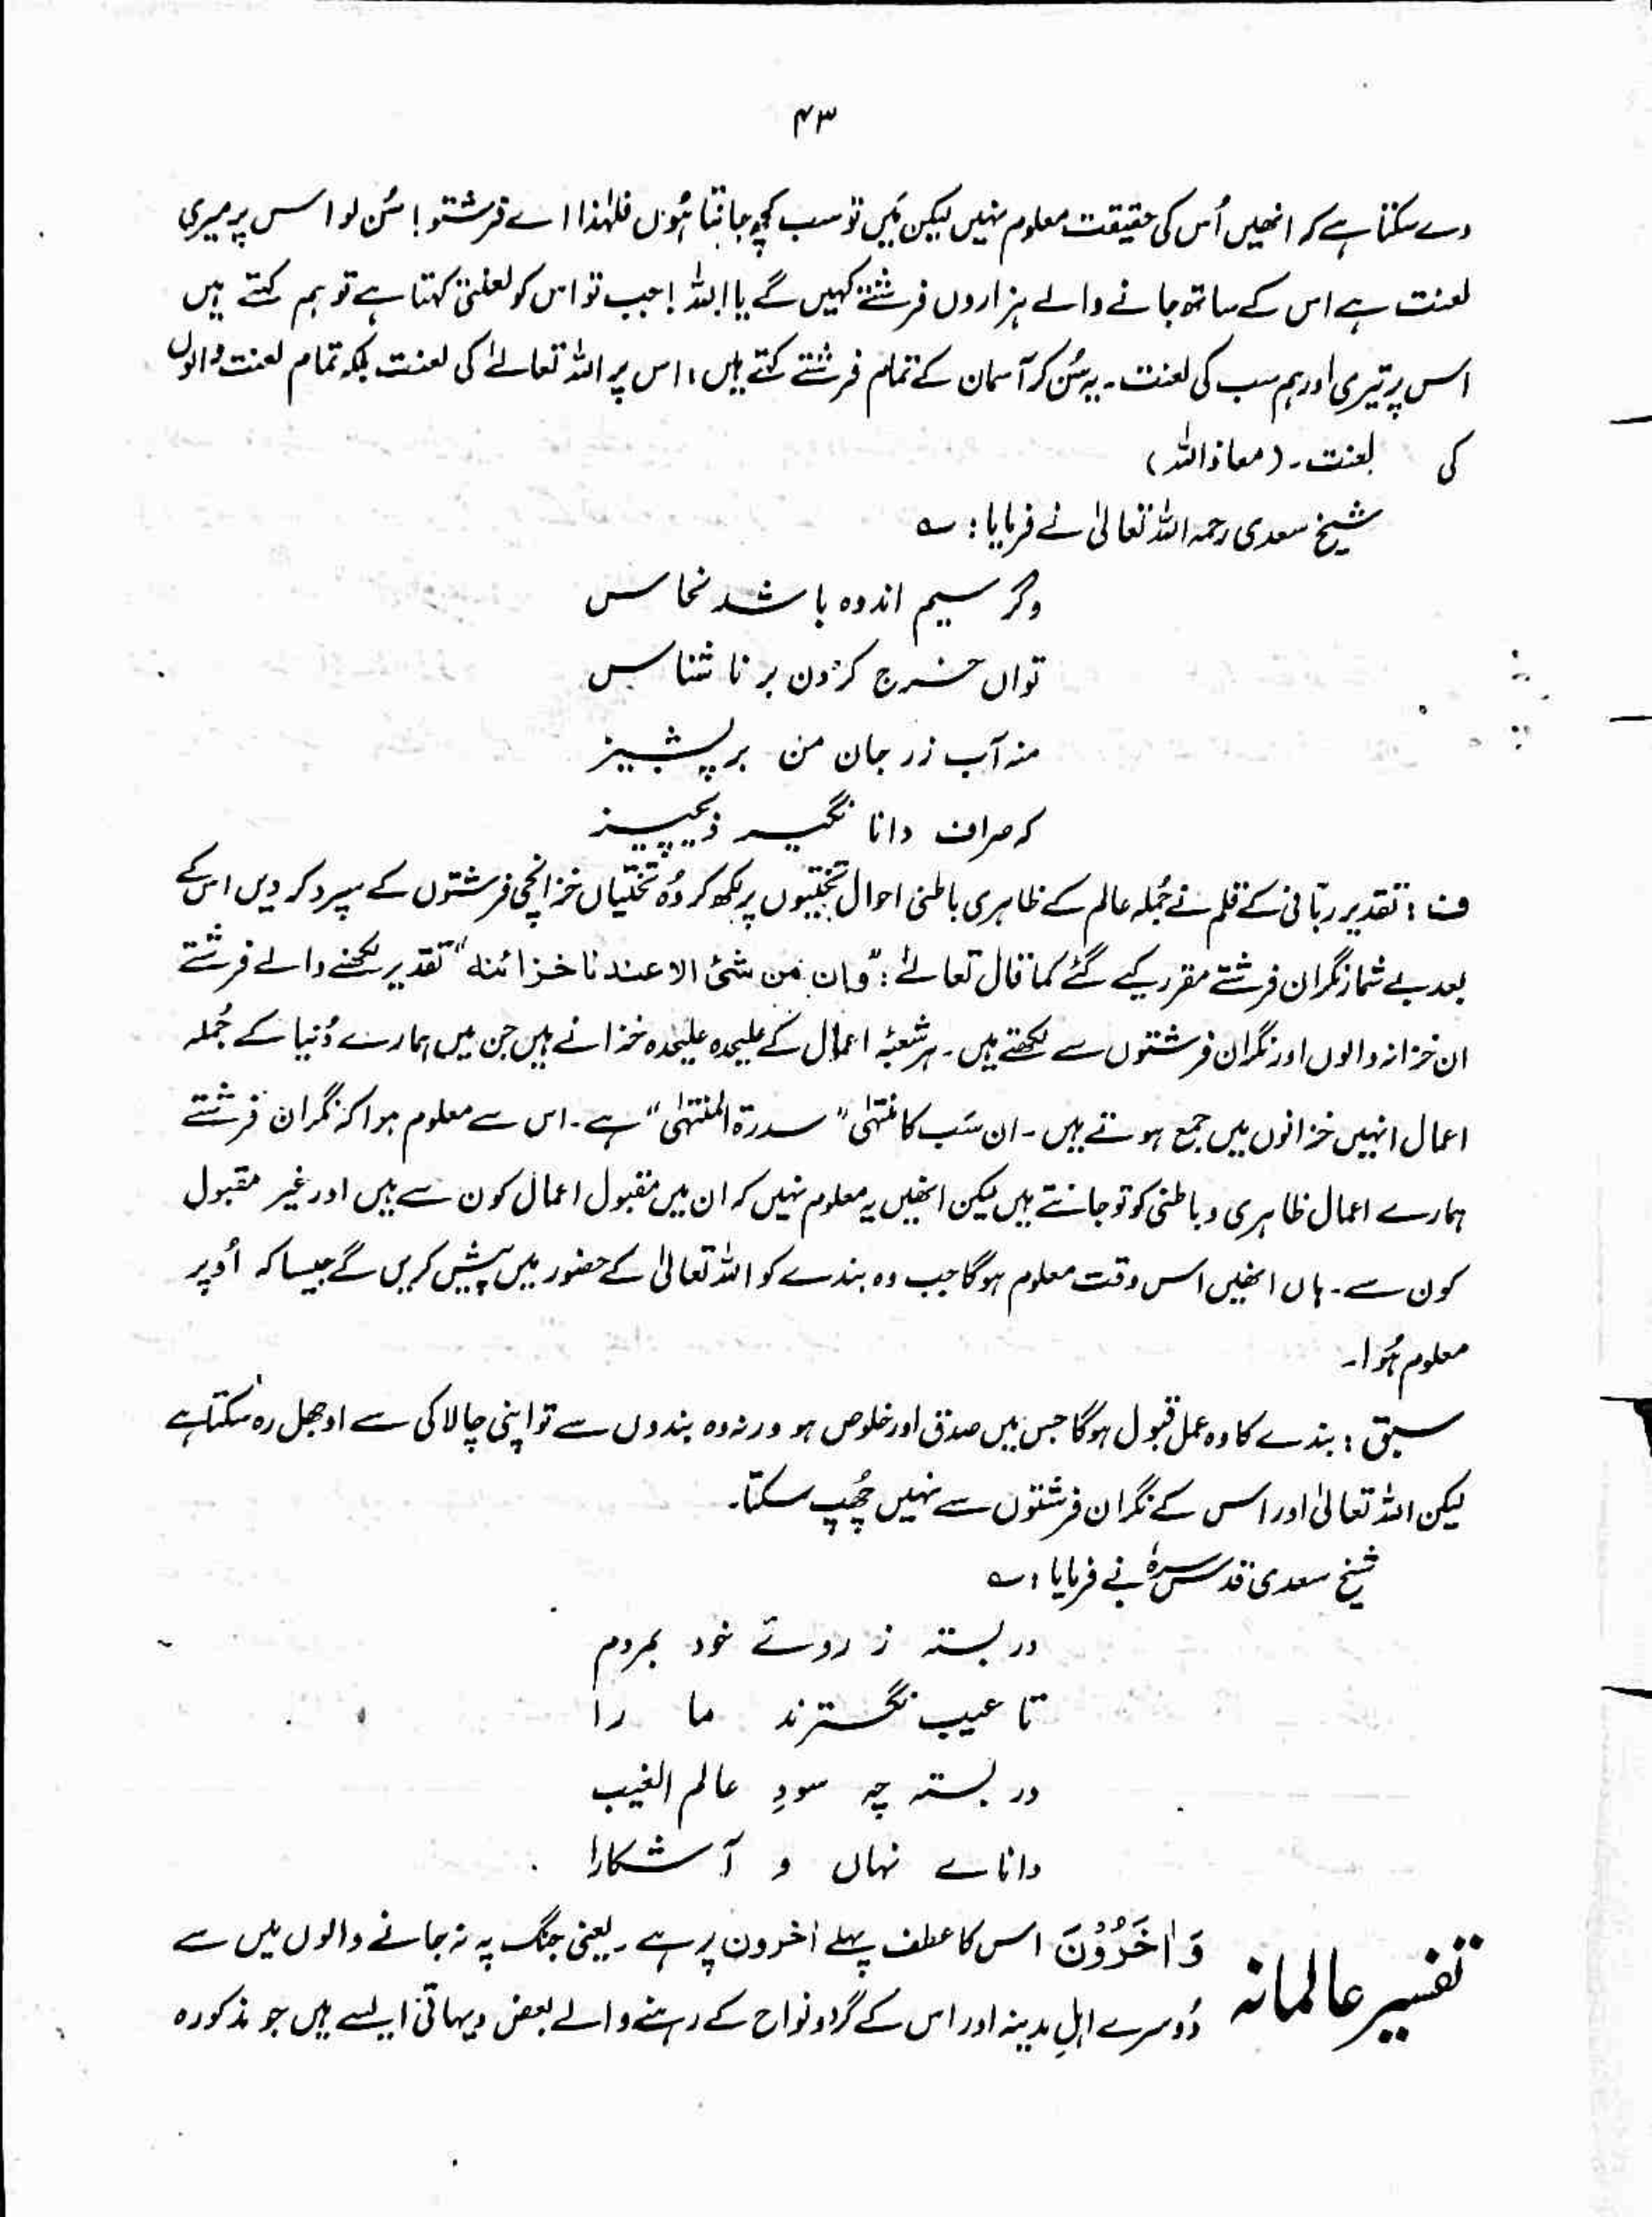 ۴۳
دے سکتا ہے کہ انھیں اُس کی حقیقت معلوم نہیں لیکن مَیں تو سب کچھ جانتا ہُوں فلہٰذا اے فرشتو! سُن لو اس پر میری
لعنت ہے اس کے ساتھ جانے والے ہزاروں فرشتے کہیں گے یا اللہ! جب تو اس کو لعنتی کہتا ہے تو ہم کہتے ہیں
اس پر تیری اور ہم سب کی لعنت۔ یہ سُن کر آسمان کے تمام فرشتے کہتے ہیں: اس پر اللہ تعالےٰ کی لعنت بلکہ تمام لعنت والوں
کی لعنت۔ (معاذ اللہ)
شیخ سعدی رحمہ اللہ تعالیٰ نے فرمایا: ؎
وگر سیم اندودہ باشد نحاس
تواں خرچ کردن بر ناشناس
منہ آب زر جان من بر پشیز
کہ صراف دانا نگیرد بچیز
ف: تقدیر ربّانی کے قلم نے جُملہ عالم کے ظاہری باطنی احوال تختیوں پر لکھ کر وُہ تختیاں خزانچی فرشتوں کے سپرد کر دیں اس کے
بعد بے شمار نگران فرشتے مقرر کیے گئے کما قال تعالےٰ: "وان من شیٔ الا عندنا خزائنہ" تقدیر لکھنے والے فرشتے
ان خزانہ والوں اور نگران فرشتوں سے لکھتے ہیں۔ ہر شعبۂ اعمال کے علیحدہ علیحدہ خزانے ہیں جن میں ہمارے دُنیا کے جُملہ
اعمال انہیں خزانوں میں جمع ہوتے ہیں۔ ان سَب کا منتہٰی "سدرۃ المنتہٰی" ہے۔ اس سے معلوم ہوا کہ نگران فرشتے
ہمارے اعمال ظاہری و باطنی کو تو جانتے ہیں لیکن انھیں یہ معلوم نہیں کہ ان میں مقبول اعمال کون سے ہیں اور غیر مقبول
کون سے۔ ہاں انھیں اس وقت معلوم ہوگا جب وہ بندے کو اللہ تعالیٰ کے حضور میں پیش کریں گے جیسا کہ اُوپر
معلوم ہُوا۔
سبق: بندے کا وہ عمل قبول ہوگا جس میں صدق اور خلوص ہو ورنہ وہ بندوں سے تو اپنی چالاکی سے اوجھل رہ سکتا ہے
لیکن اللہ تعالیٰ اور اس کے نگران فرشتوں سے نہیں چُھپ سکتا۔
شیخ سعدی قدس سرہٗ نے فرمایا: ؎
در بستہ ز روئے خود بمردم
تا عیب نگسترند ما را
در بستہ چہ سودِ عالم الغیب
دانائے نہاں و آشکارا
تفسیر عالمانہ
وَاٰخَرُوْنَ اس کا عطف پہلے اٰخرون پر ہے۔ یعنی جنگ پہ نہ جانے والوں میں سے
دُوسرے اہلِ مدینہ اور اس کے گرد و نواح کے رہنے والے بعض دیہاتی ایسے ہیں جو مذکورہ